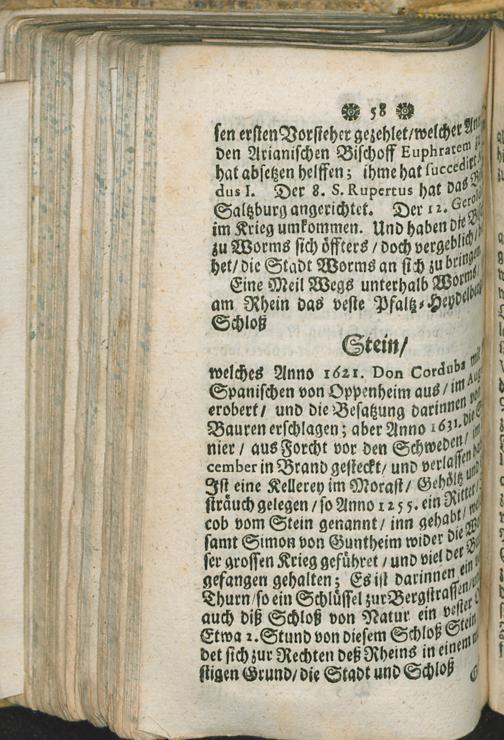 58
sen ersten Vorsteher gezehlet/welcher
den Arianischen Bischoff Euphratem
hat absetzen helffen; ihme hat succedirt
dus I. Der 8. S. Rupertus hat das
Saltzburg angerichtet. Der 12. Gerol
im Krieg umkommen. Und haben die
zu Worms sich öffters / doch vergeblich/
het/ die Stadt Worms an sich zu bringen
Eine Meil Wegs unterhalb Worms/
am Rhein das veste Pfaltz-Heydelber
Schloß
Stein/
welches Anno 1621. Don Corduba mit
Spanischen von Oppenheim aus / im Aug
erobert / und die Besatzung darinnen von
Bauren erschlagen; aber Anno 1631. die
nier / aus Forcht vor den Schweden / im
cember in Brand gesteckt/ und verlassen
Ist eine Kellerey im Morast/ Gehöltz und
sträuch gelegen / so Anno 1255. ein Ritter/
cob vom Stein genannt / inn gehabt/
samt Simon von Guntheim wider die
ser grossen Krieg geführet / und viel der
gefangen gehalten; Es ist darinnen ein
Thurn/so ein Schlüssel zur Bergstrassen/
auch diß Schloß von Natur ein vester
Etwa 2. Stund von diesem Schloß Stein
det sich zur Rechten deß Rheins in einem
stigen Grund/ die Stadt und Schloß